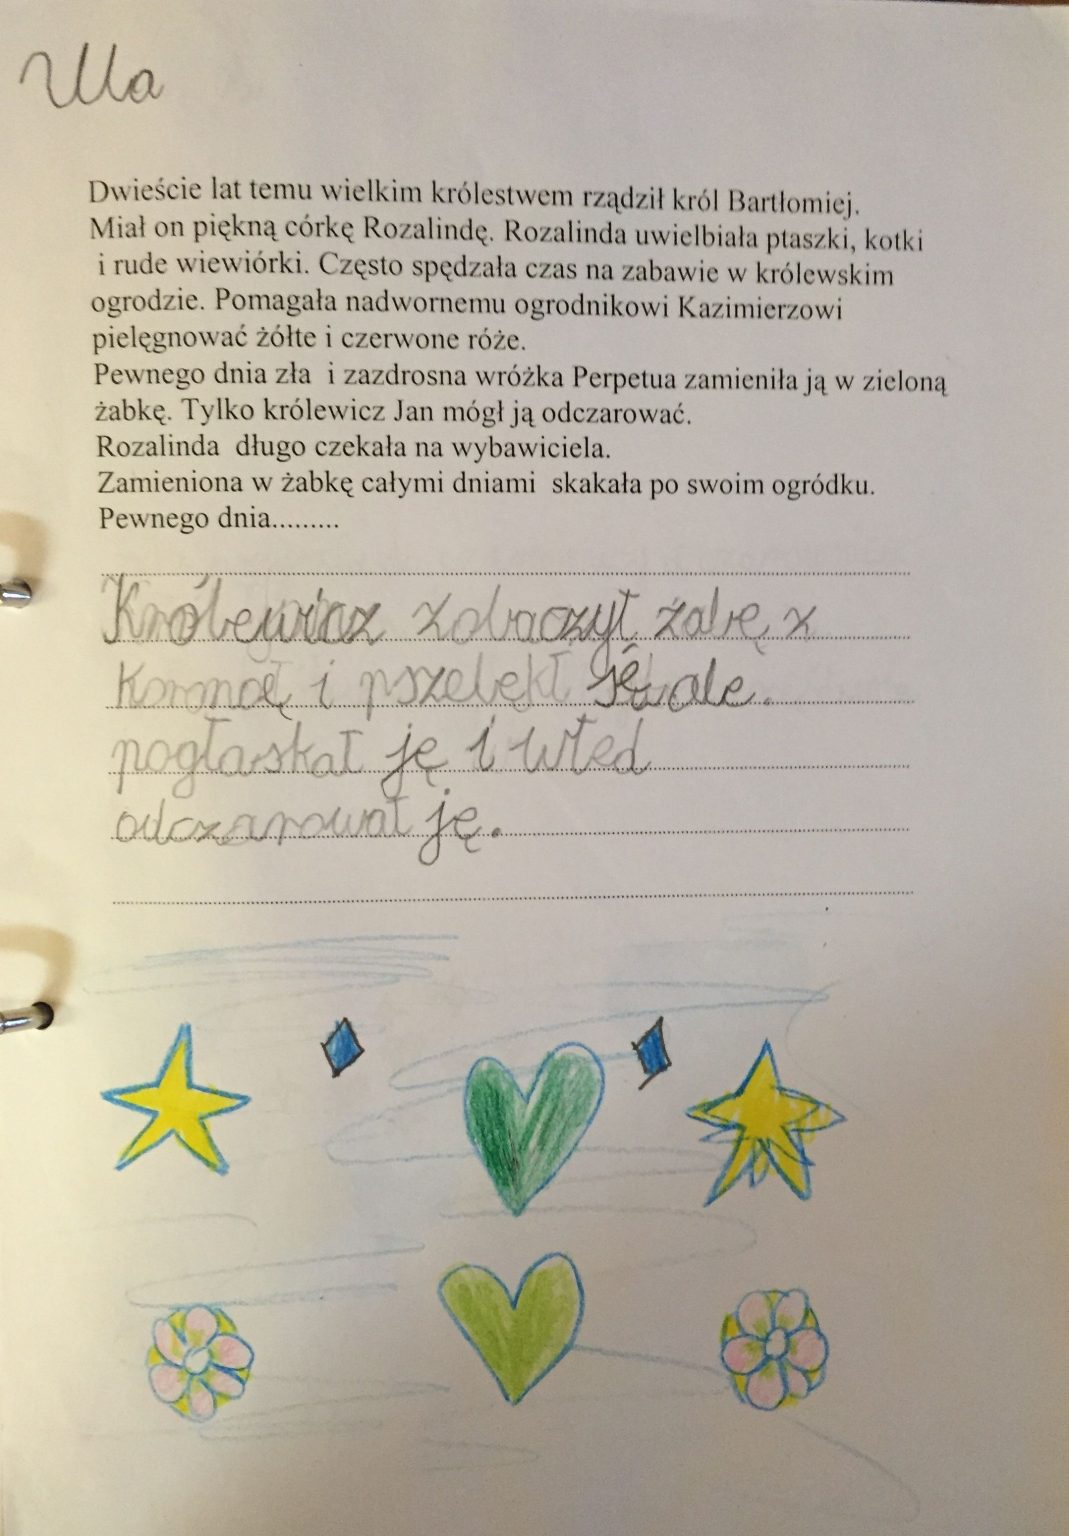 Ula
Dwieście lat temu wielkim królestwem rządził król Bartłomiej.
Miał on piękną córkę Rozalindę. Rozalinda uwielbiała ptaszki, kotki
i rude wiewiórki. Często spędzała czas na zabawie w królewskim
ogrodzie. Pomagała nadwornemu ogrodnikowi Kazimierzowi
pielęgnować żółte i czerwone róże.
Pewnego dnia zła i zazdrosna wróżka Perpetua zamieniła ją w zieloną
żabkę. Tylko królewicz Jan mógł ją odczarować.
Rozalinda długo czekała na wybawiciela.
Zamieniona w żabkę całymi dniami skakała po swoim ogródku.
Pewnego dnia.........
Królewicz zobaczył żabę z
koroną i pszelękł sę ale.
pogłaskał ję i wted
odczarował ję.